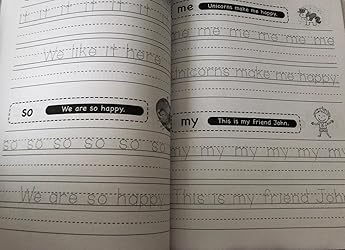 it it it it it it it
We like it here.
so We are so happy.
so so so so so so so
We are so happy
me Unicorns make me happy.
me me me me me me me
Unicorns make me happy
my This is my Friend John.
my my my my my m
This is my friend John